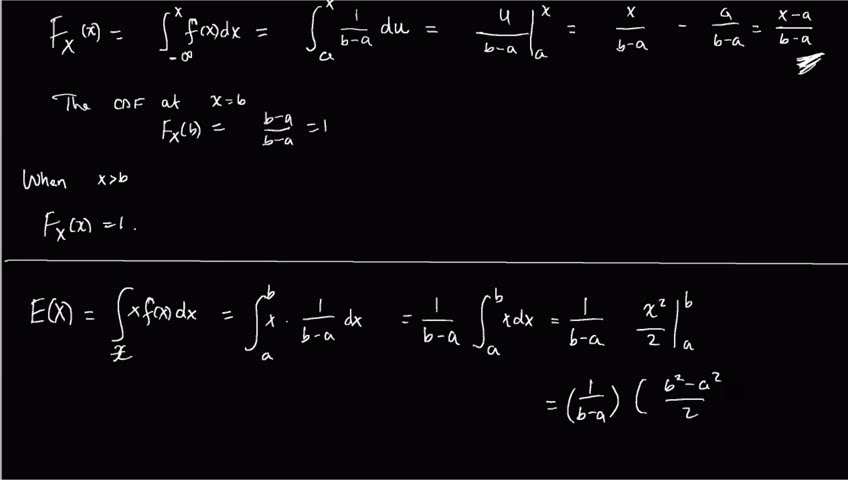 F_X(x) = ∫_{-∞}^{x} f(x)dx = ∫_{a}^{x} \frac{1}{b-a} du = \frac{u}{b-a} |_{a}^{x} = \frac{x}{b-a} - \frac{a}{b-a} = \frac{x-a}{b-a}
The CDF at x=b
F_X(b) = \frac{b-a}{b-a} = 1
When x>b
F_X(x) = 1.
E(X) = ∫_{x} x f(x) dx = ∫_{a}^{b} x · \frac{1}{b-a} dx = \frac{1}{b-a} ∫_{a}^{b} x dx = \frac{1}{b-a} \frac{x^2}{2} |_{a}^{b}
= (\frac{1}{b-a}) ( \frac{b^2-a^2}{2}